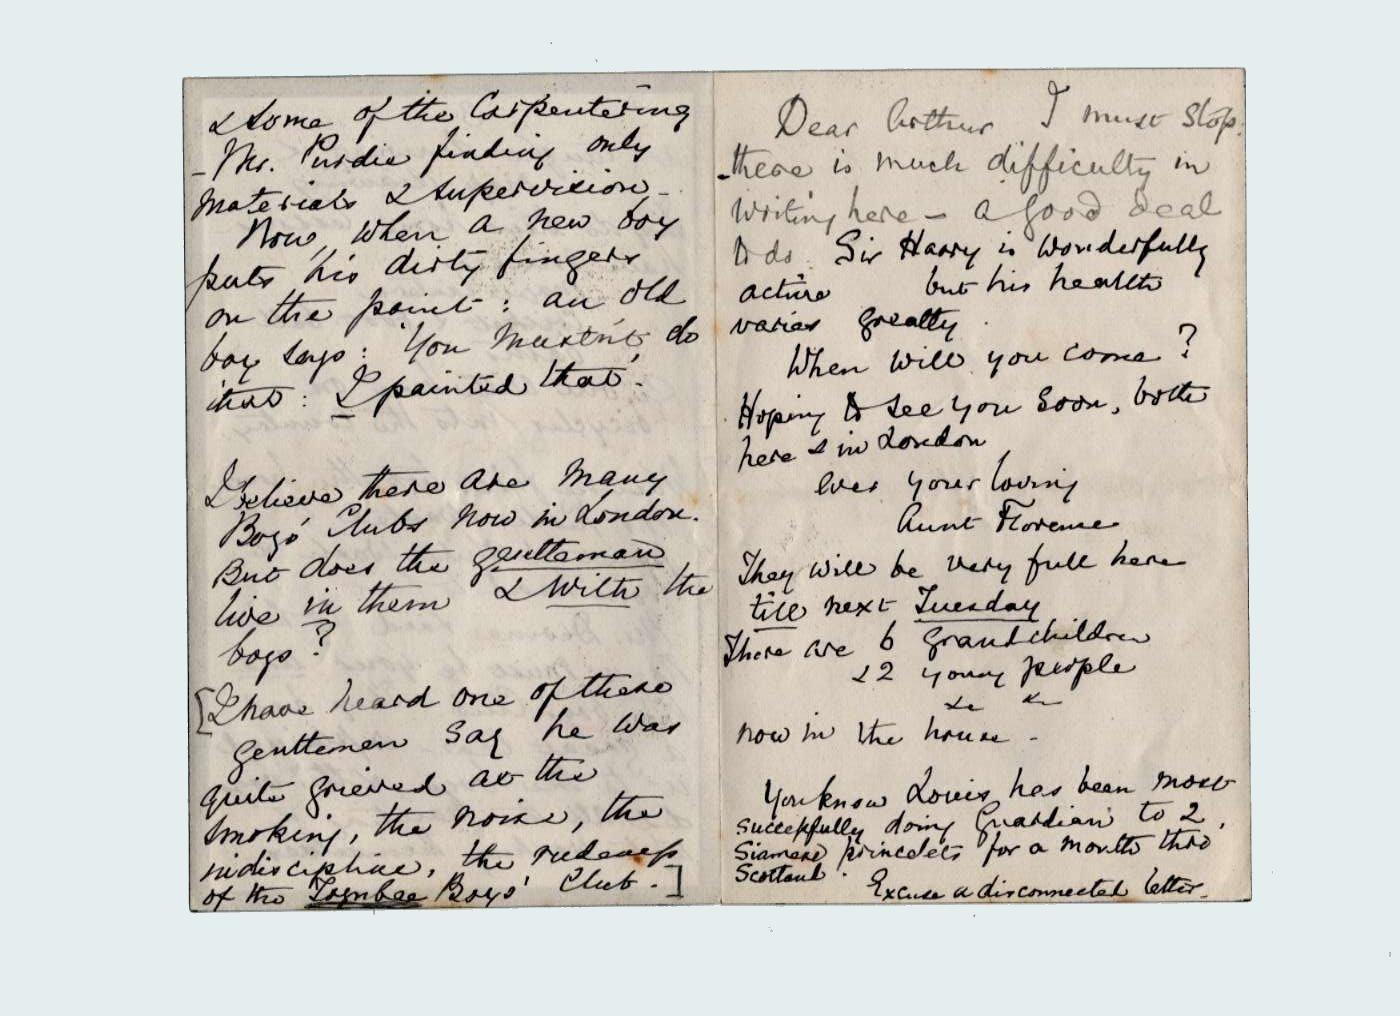 & some of the Carpentering
- Mr. Purdie finding only
materials & supervision -
Now, when a new boy
puts his dirty fingers
on the paint: an old
boy says: 'You mustn't do
that: I painted that'.
I believe there are many
Boys' Clubs now in London.
But does the gentleman
live in them & with the
boys?
[I have heard one of these
gentlemen say he was
quite grieved at the
smoking, the noise, the
indiscipline, the rudeness
of the Toynbee Boys' Club.]
Dear Arthur I must stop:
there is much difficulty in
writing here - a good deal
to do. Sir Harry is wonderfully
active but his health
varies greatly.
When will you come?
Hoping to see you soon, both
here & in London
ever your loving
Aunt Florence
They will be very full here
till next Tuesday
There are 6 grandchildren
& 2 young people
&c &c
now in the house -
You know Louis has been most
successfully doing Guardian to 2
Siamese princelets for a month thro
Scotland.
Excuse a disconnected letter.